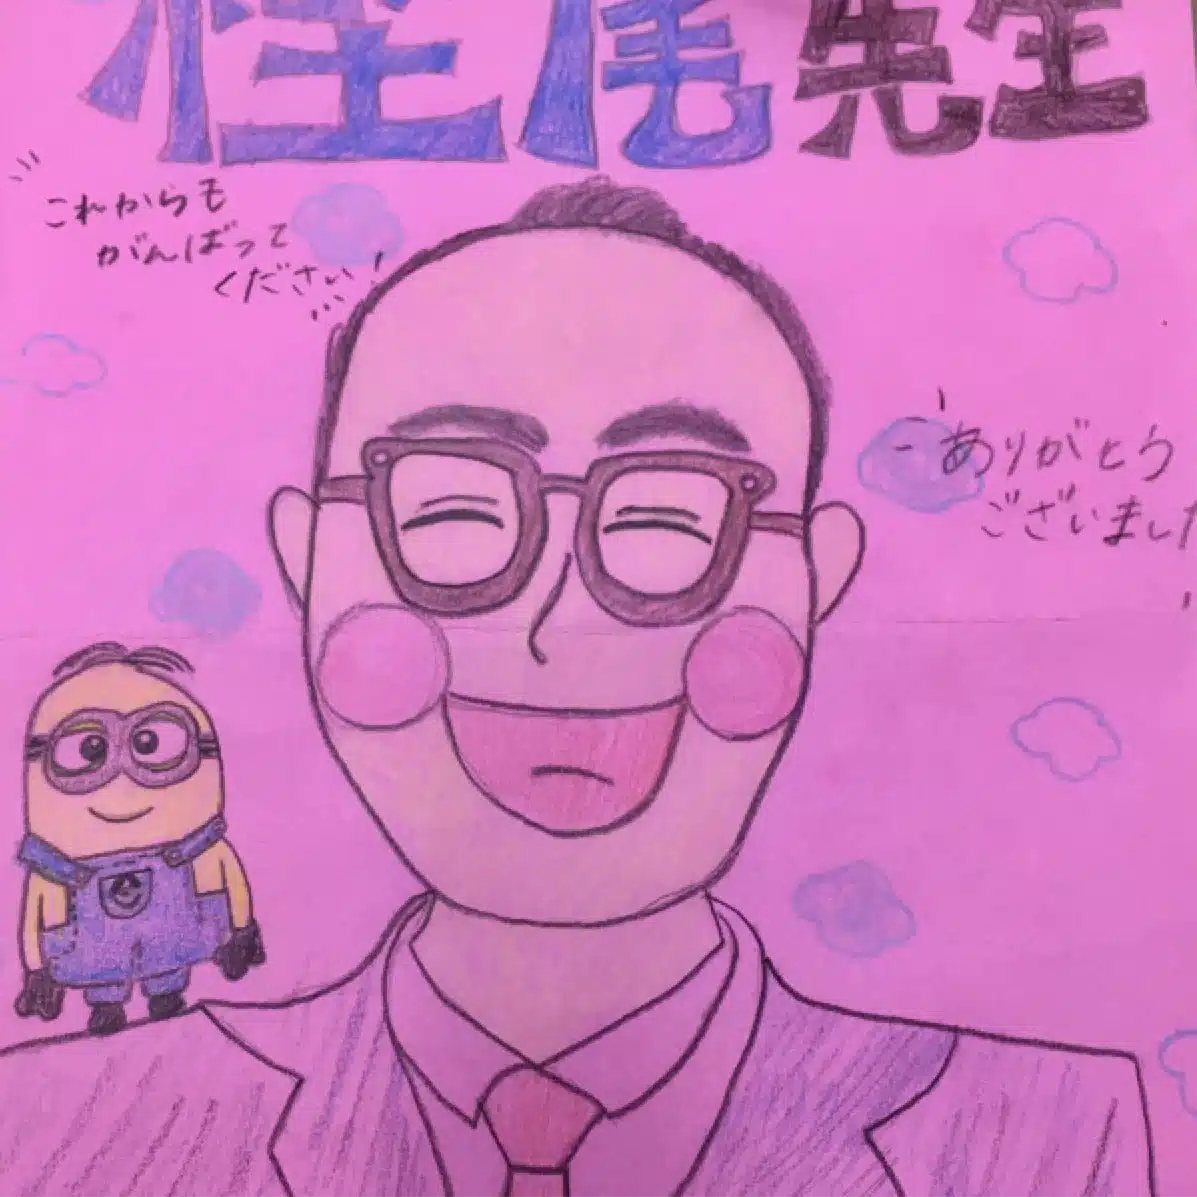 尾先生
これからも
がんばって
ください!
ありがとう
ございました